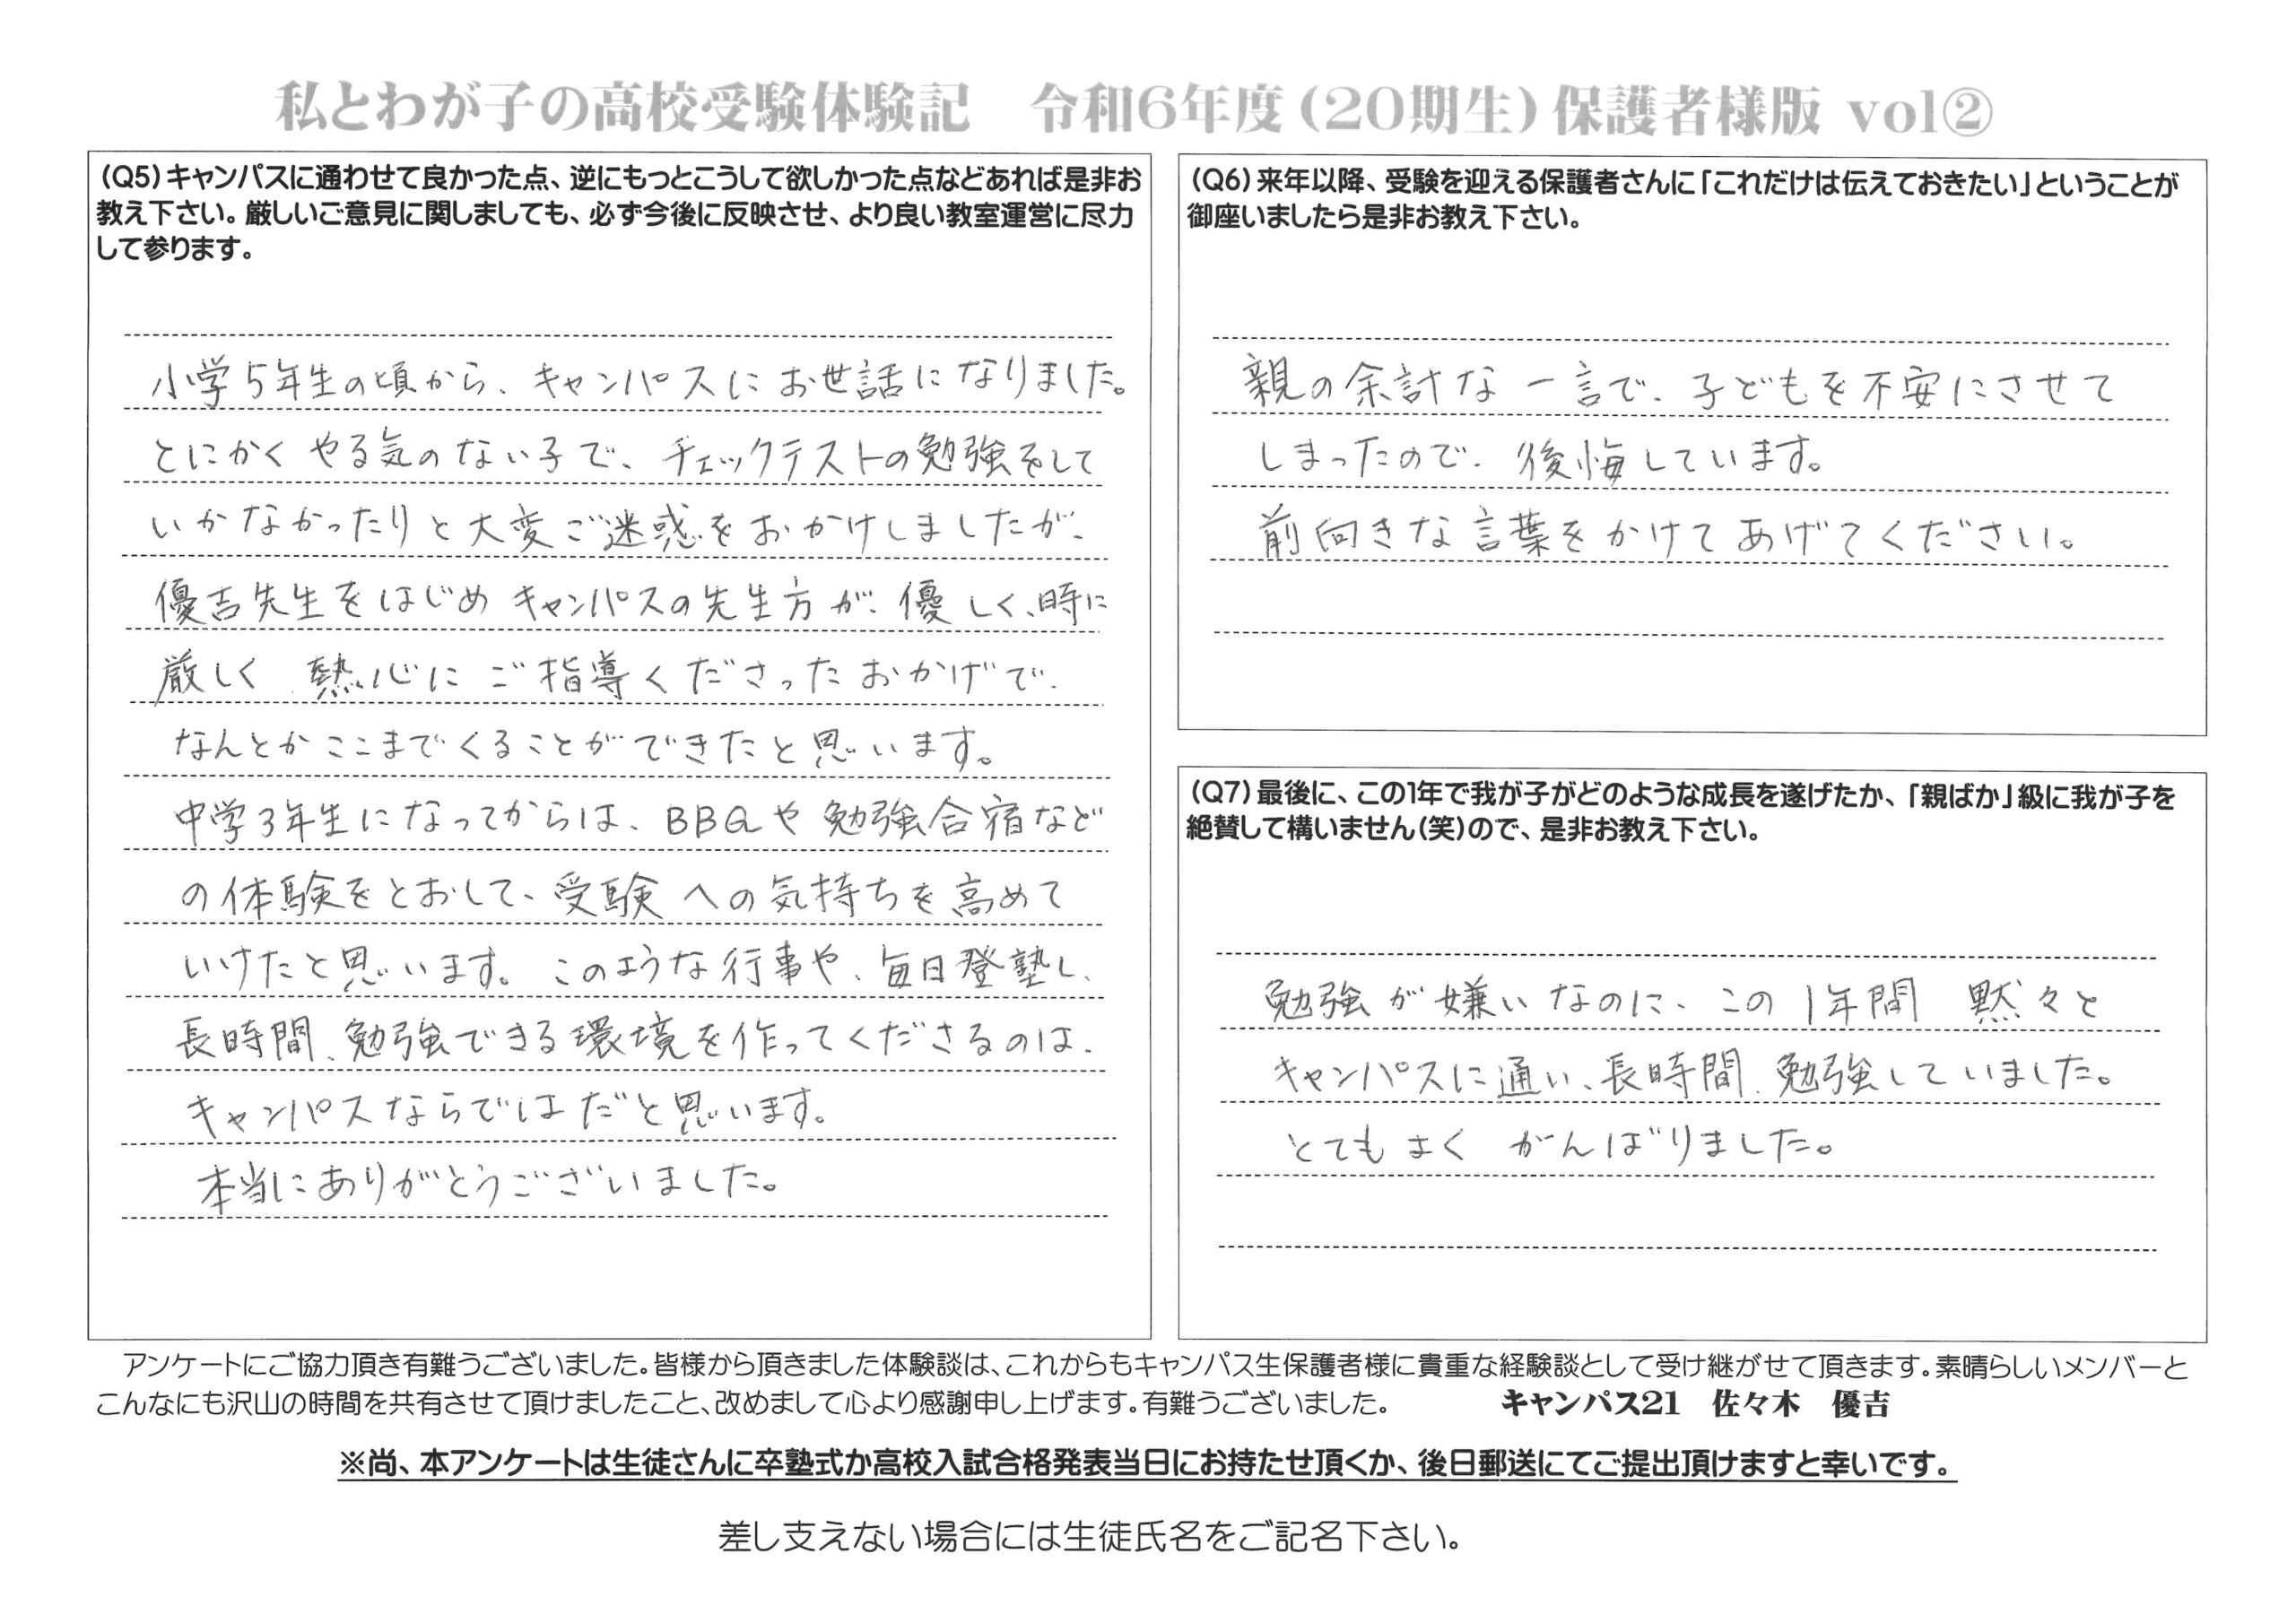 私とわが子の高校受験体験記　令和6年度（20期生）保護者様版 vol②
（Q5）キャンパスに通わせて良かった点、逆にもっとこうして欲しかった点などあれば是非お
教え下さい。厳しいご意見に関しましても、必ず今後に反映させ、より良い教室運営に尽力
して参ります。
小学5年生の頃から、キャンパスにお世話になりました。
とにかくやる気のない子で、チェックテストの勉強をして
いかなかったりと大変ご迷惑をおかけしましたが、
優吉先生をはじめキャンパスの先生方が、優しく、時に
厳しく、熱心にご指導くださったおかげで、
なんとかここまでくることができたと思います。
中学3年生になってからは、BBQや勉強合宿など
の体験をとおして、受験への気持ちを高めて
いけたと思います。このような行事や、毎日登塾し、
長時間、勉強できる環境を作ってくださるのは、
キャンパスならではだと思います。
本当にありがとうございました。
（Q6）来年以降、受験を迎える保護者さんに「これだけは伝えておきたい」ということが
御座いましたら是非お教え下さい。
親の余計な一言で、子どもを不安にさせて
しまったので、後悔しています。
前向きな言葉をかけてあげてください。
（Q7）最後に、この1年で我が子がどのような成長を遂げたか、「親ばか」級に我が子を
絶賛して構いません（笑）ので、是非お教え下さい。
勉強が嫌いなのに、この1年間　黙々と
キャンパスに通い、長時間、勉強していました。
とてもよく がんばりました。
アンケートにご協力頂き有難うございました。皆様から頂きました体験談は、これからもキャンパス生保護者様に貴重な経験談として受け継がせて頂きます。素晴らしいメンバーと
こんなにも沢山の時間を共有させて頂けましたこと、改めまして心より感謝申し上げます。有難うございました。　キャンパス21　佐々木　優吉
※尚、本アンケートは生徒さんに卒塾式か高校入試合格発表当日にお持たせ頂くか、後日郵送にてご提出頂けますと幸いです。
差し支えない場合には生徒氏名をご記名下さい。